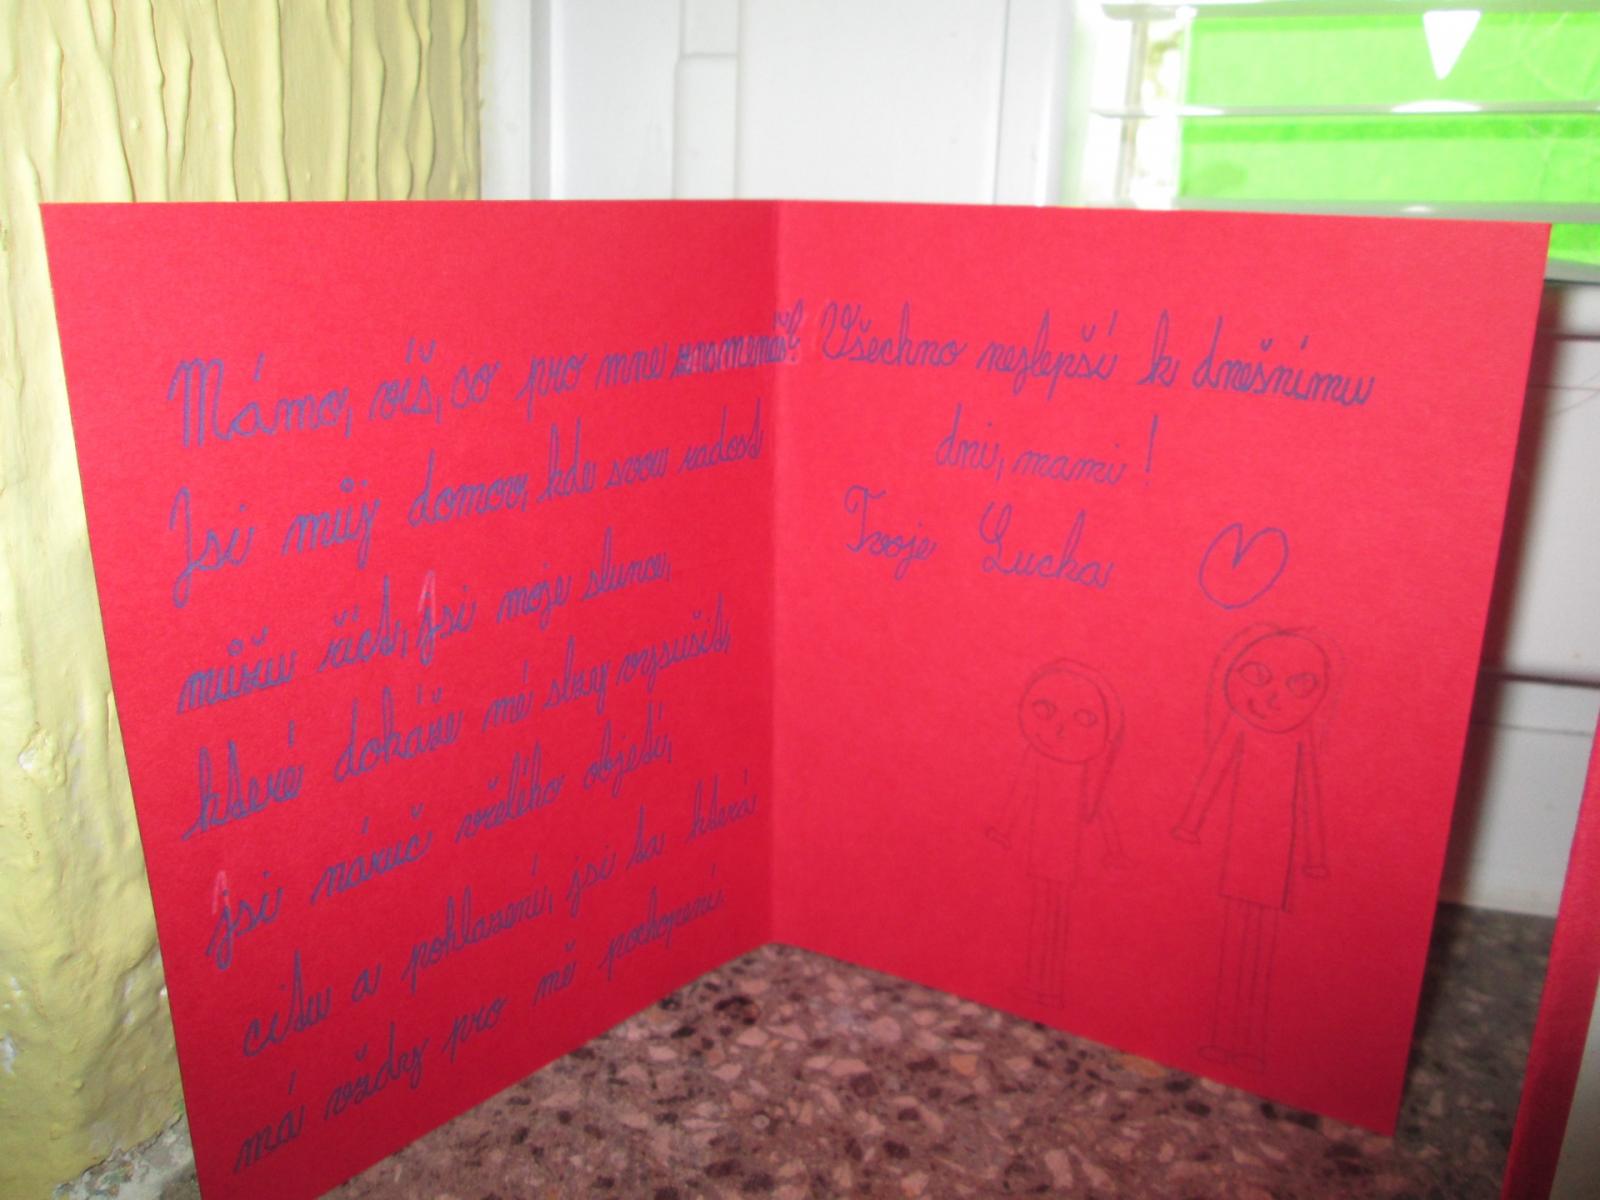 Mámo, víš, co pro mne znamenáš?
Jsi můj domov, kde svou radost
můžu říct, jsi moje slunce,
které dokáže mé slzy vysušit,
jsi náruč vřelého objetí,
citu a pohlazení, jsi ta která
má vždy pro mě pochopení.
Všechno nejlepší k dnešnímu
dni, mami!
Tvoje Lucka